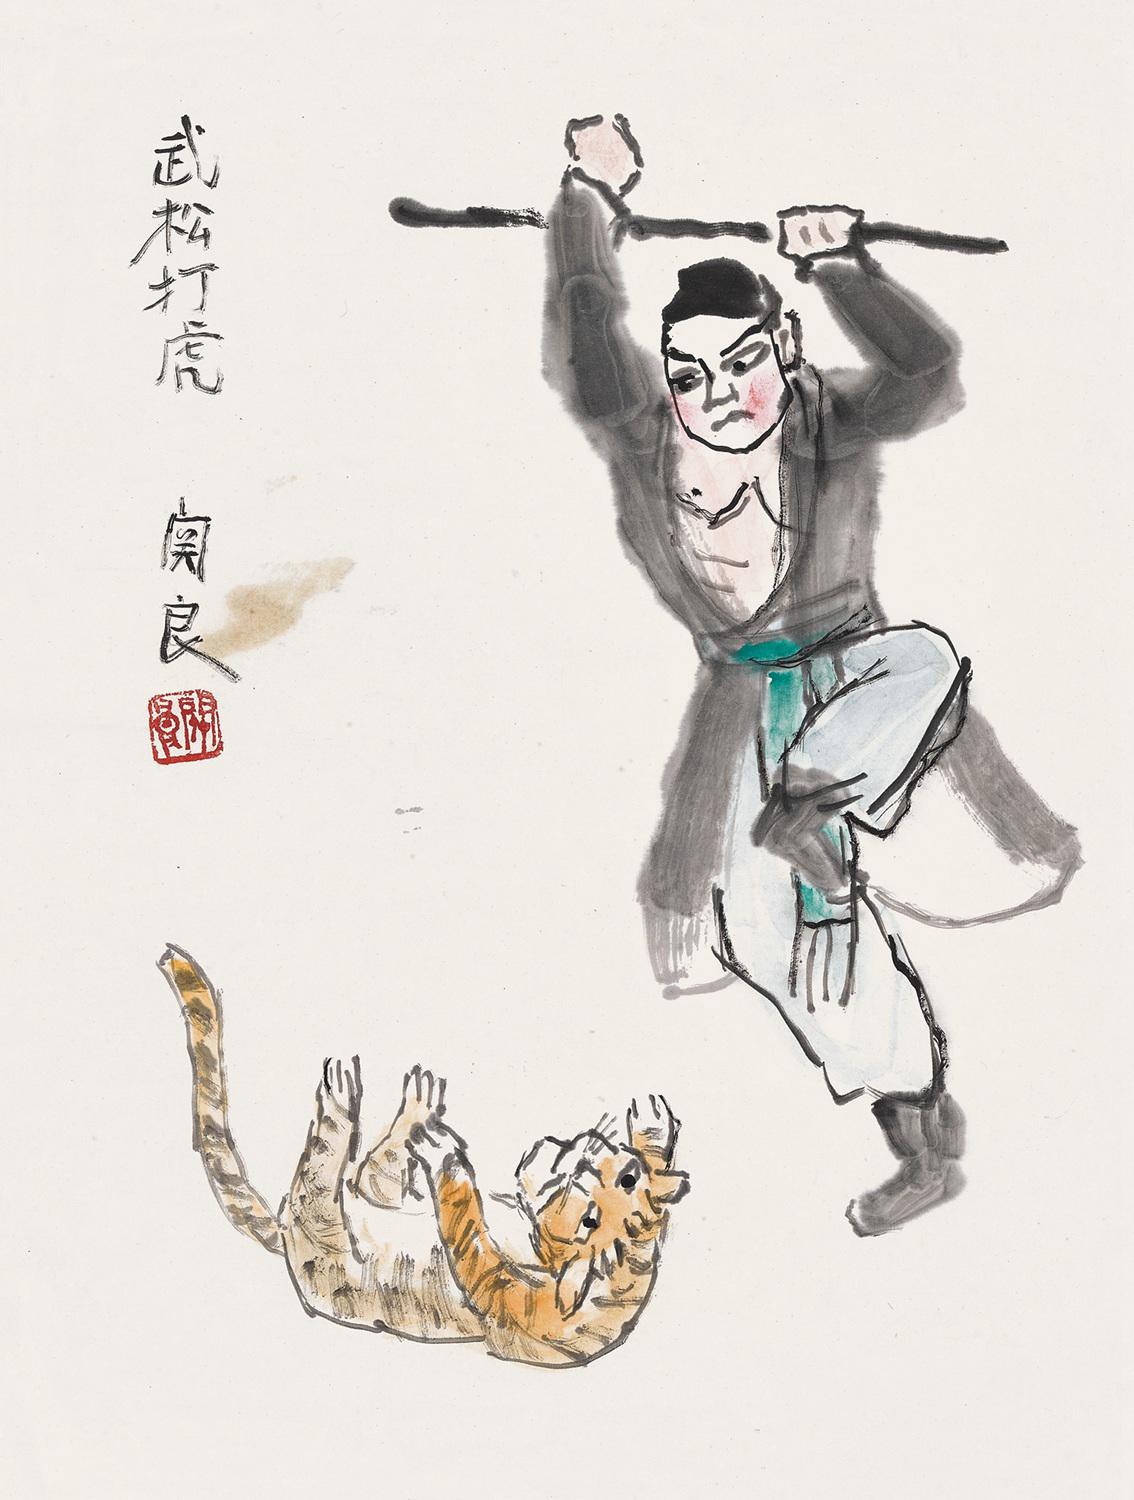 武松打虎
関良
關良